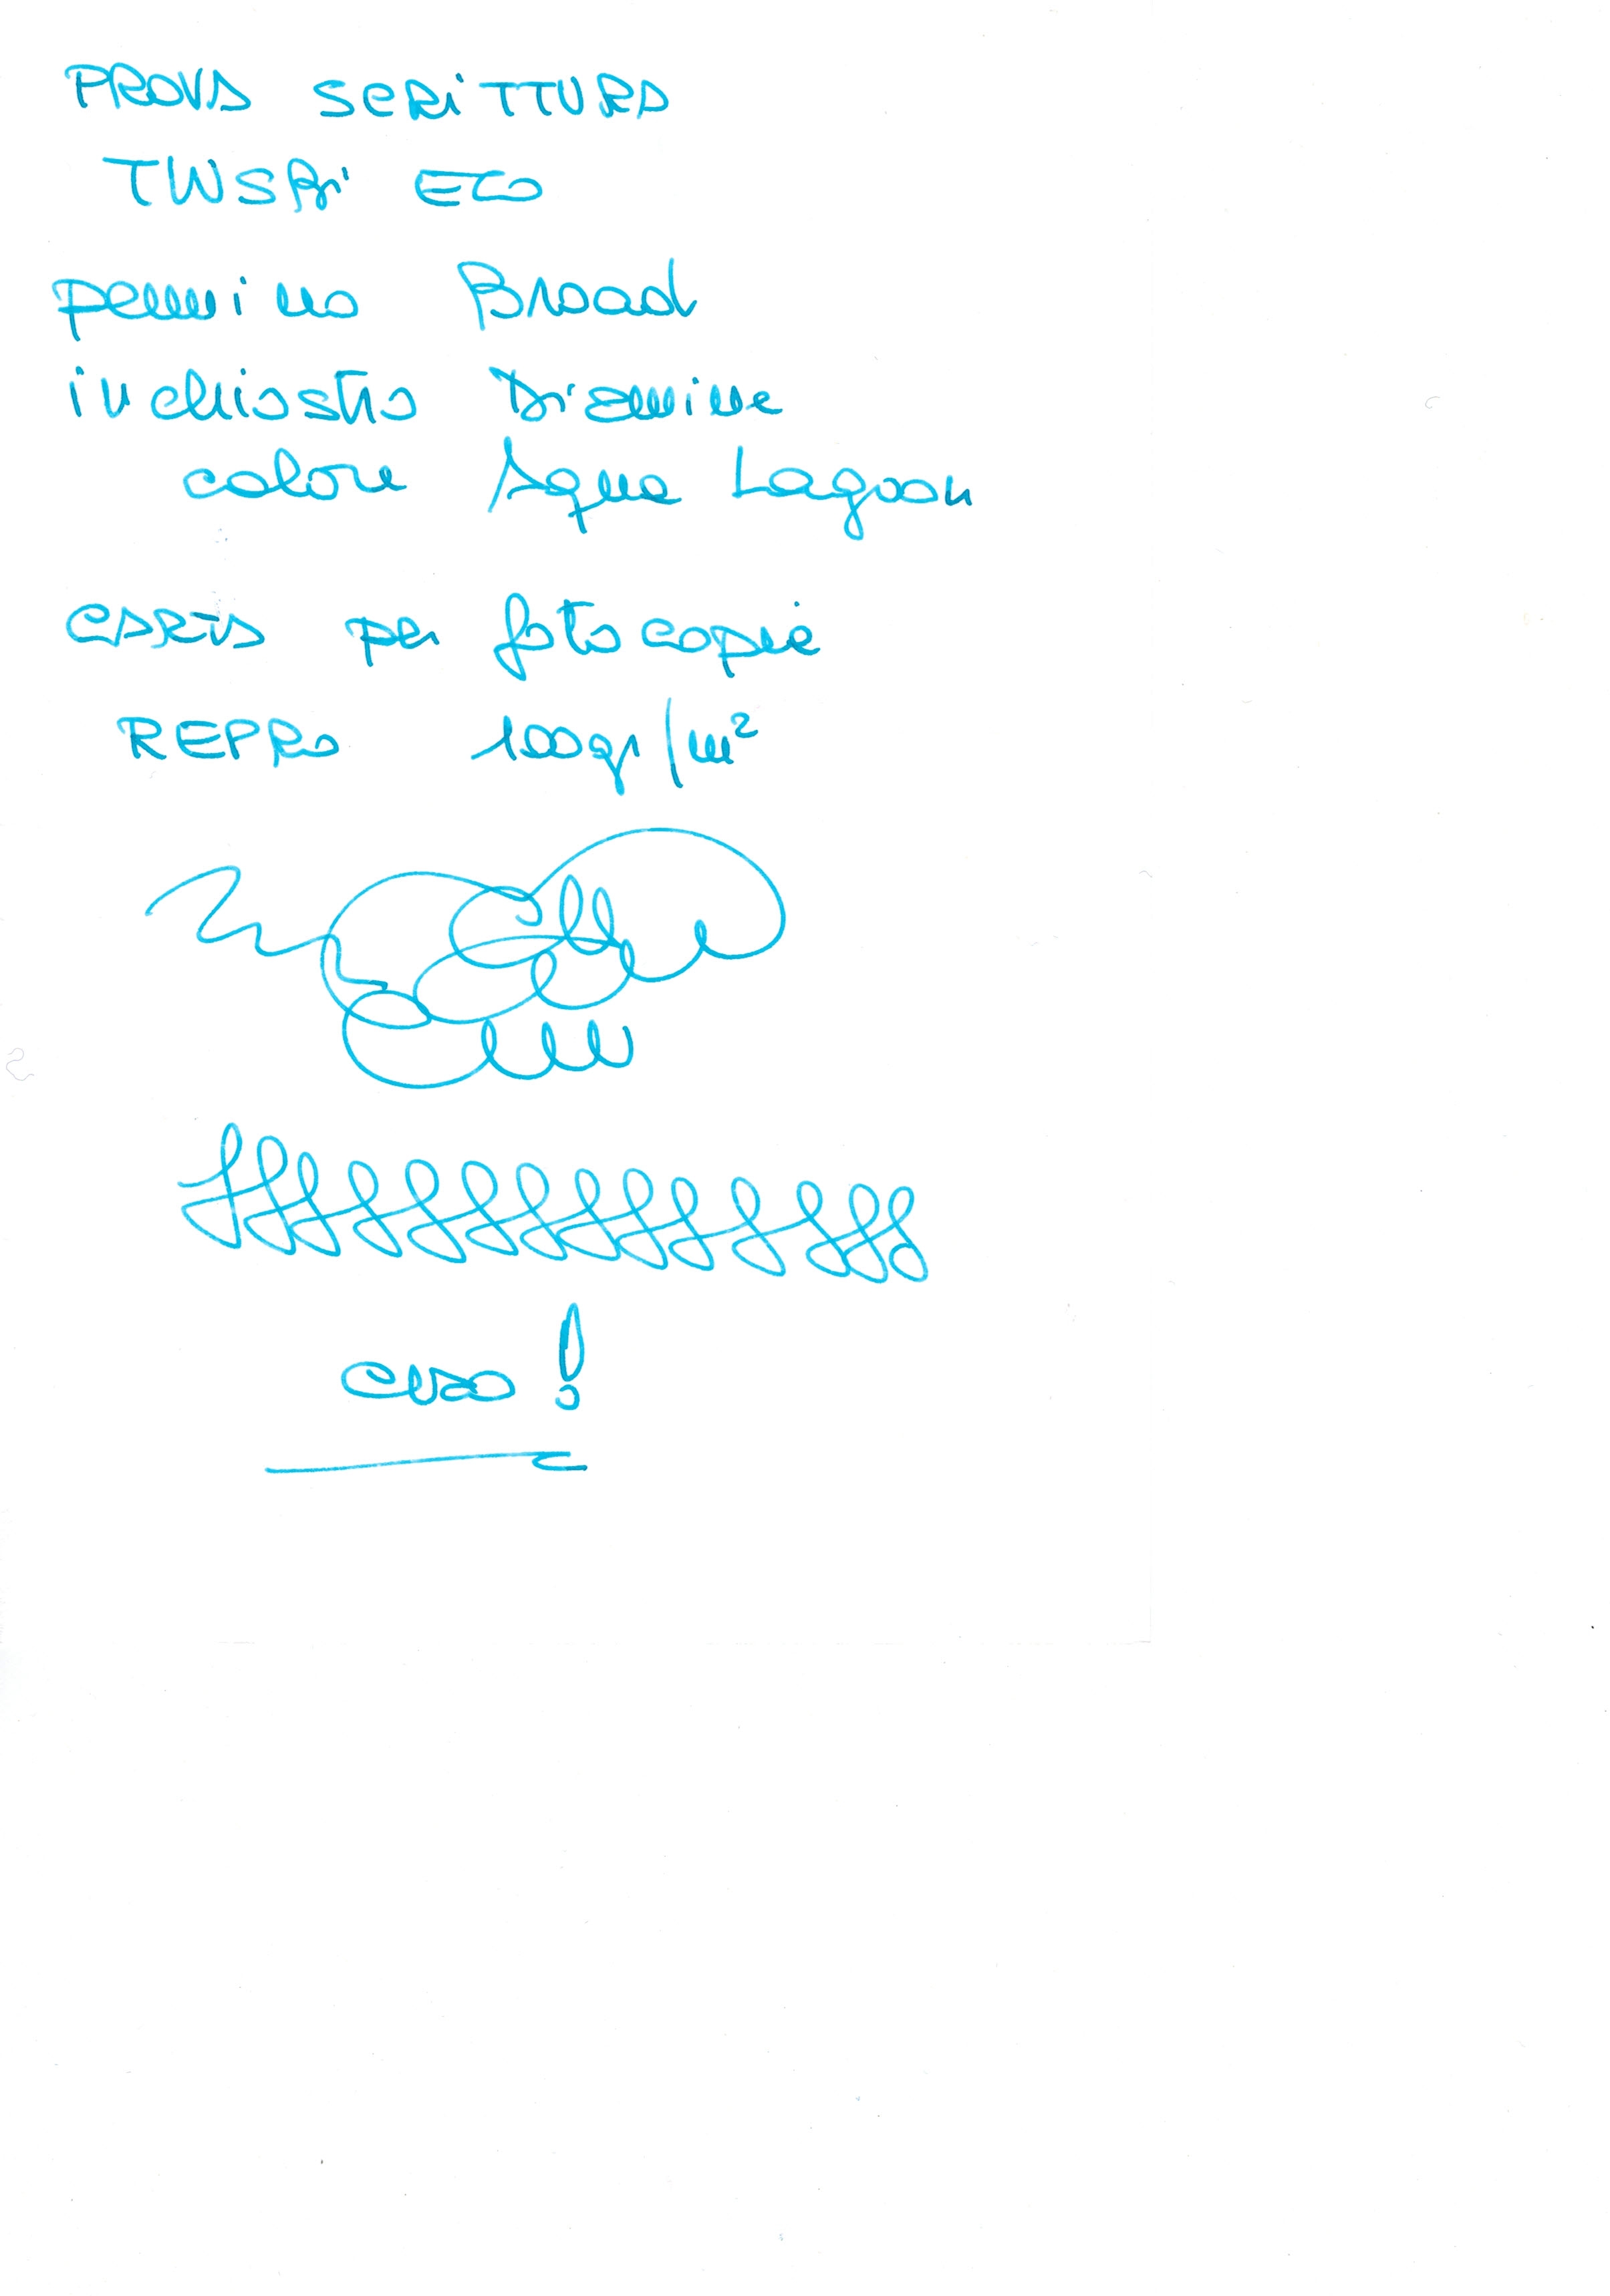 PROVA SCRITTURA
TWSBi ECO
pennino Broad
inchiostro Diamine
colore Aqua Lagoon
CARTA per fotocopie
REPRO 100gr/m²
ciao!